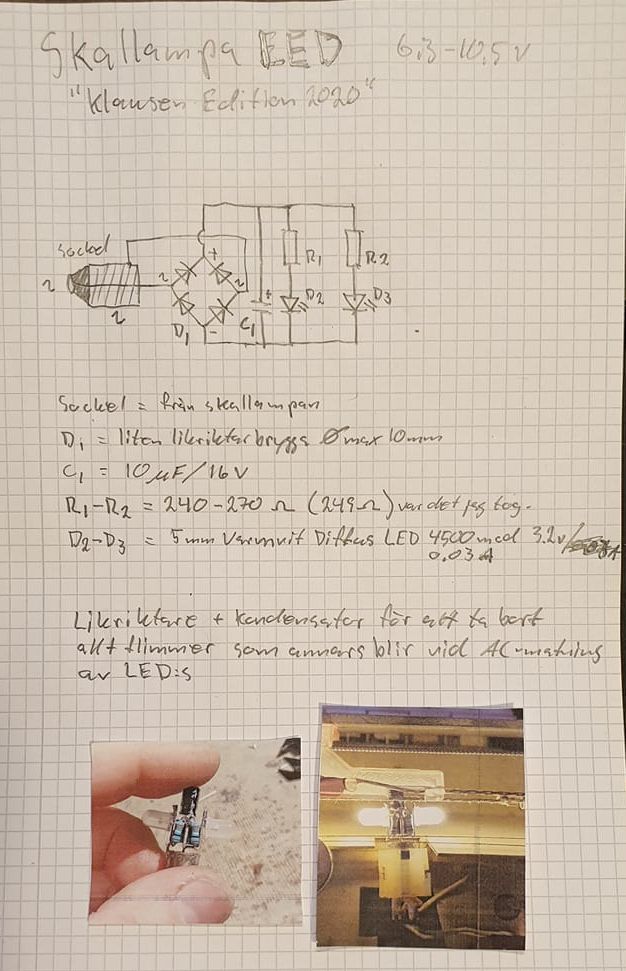 Skallampa LED 6,3-10,5V
"Klausen Edition 2020"
Sockel
~
~
D1
+
~
~
-
+
C1
R1
R2
D2
D3
Sockel = från skallampan
D1 = liten likriktarbrygga Ø max 10mm
C1 = 10µF/16V
R1-R2 = 240-270 Ω (249Ω) var det jag tog.
D2-D3 = 5mm Varmvit Diffus LED 4500mcd 3.2V/
0.03A
Likriktare + Kondensator för att ta bort
allt flimmer som annars blir vid AC-matning
av LED:s